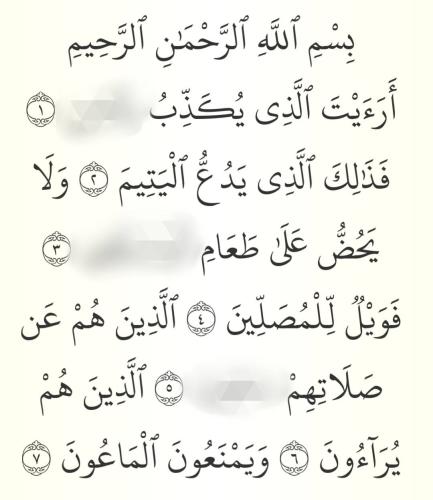 بِسْمِ ٱللَّهِ ٱلرَّحْمَـٰنِ ٱلرَّحِيمِ
أَرَءَيْتَ ٱلَّذِى يُكَذِّبُ ١
فَذَٰلِكَ ٱلَّذِى يَدُعُّ ٱلْيَتِيمَ ٢ وَلَا
يَحُضُّ عَلَىٰ طَعَامِ ٣
فَوَيْلٌ لِّلْمُصَلِّينَ ٤ ٱلَّذِينَ هُمْ عَن
صَلَاتِهِمْ ٥ ٱلَّذِينَ هُمْ
يُرَآءُونَ ٦ وَيَمْنَعُونَ ٱلْمَاعُونَ ٧